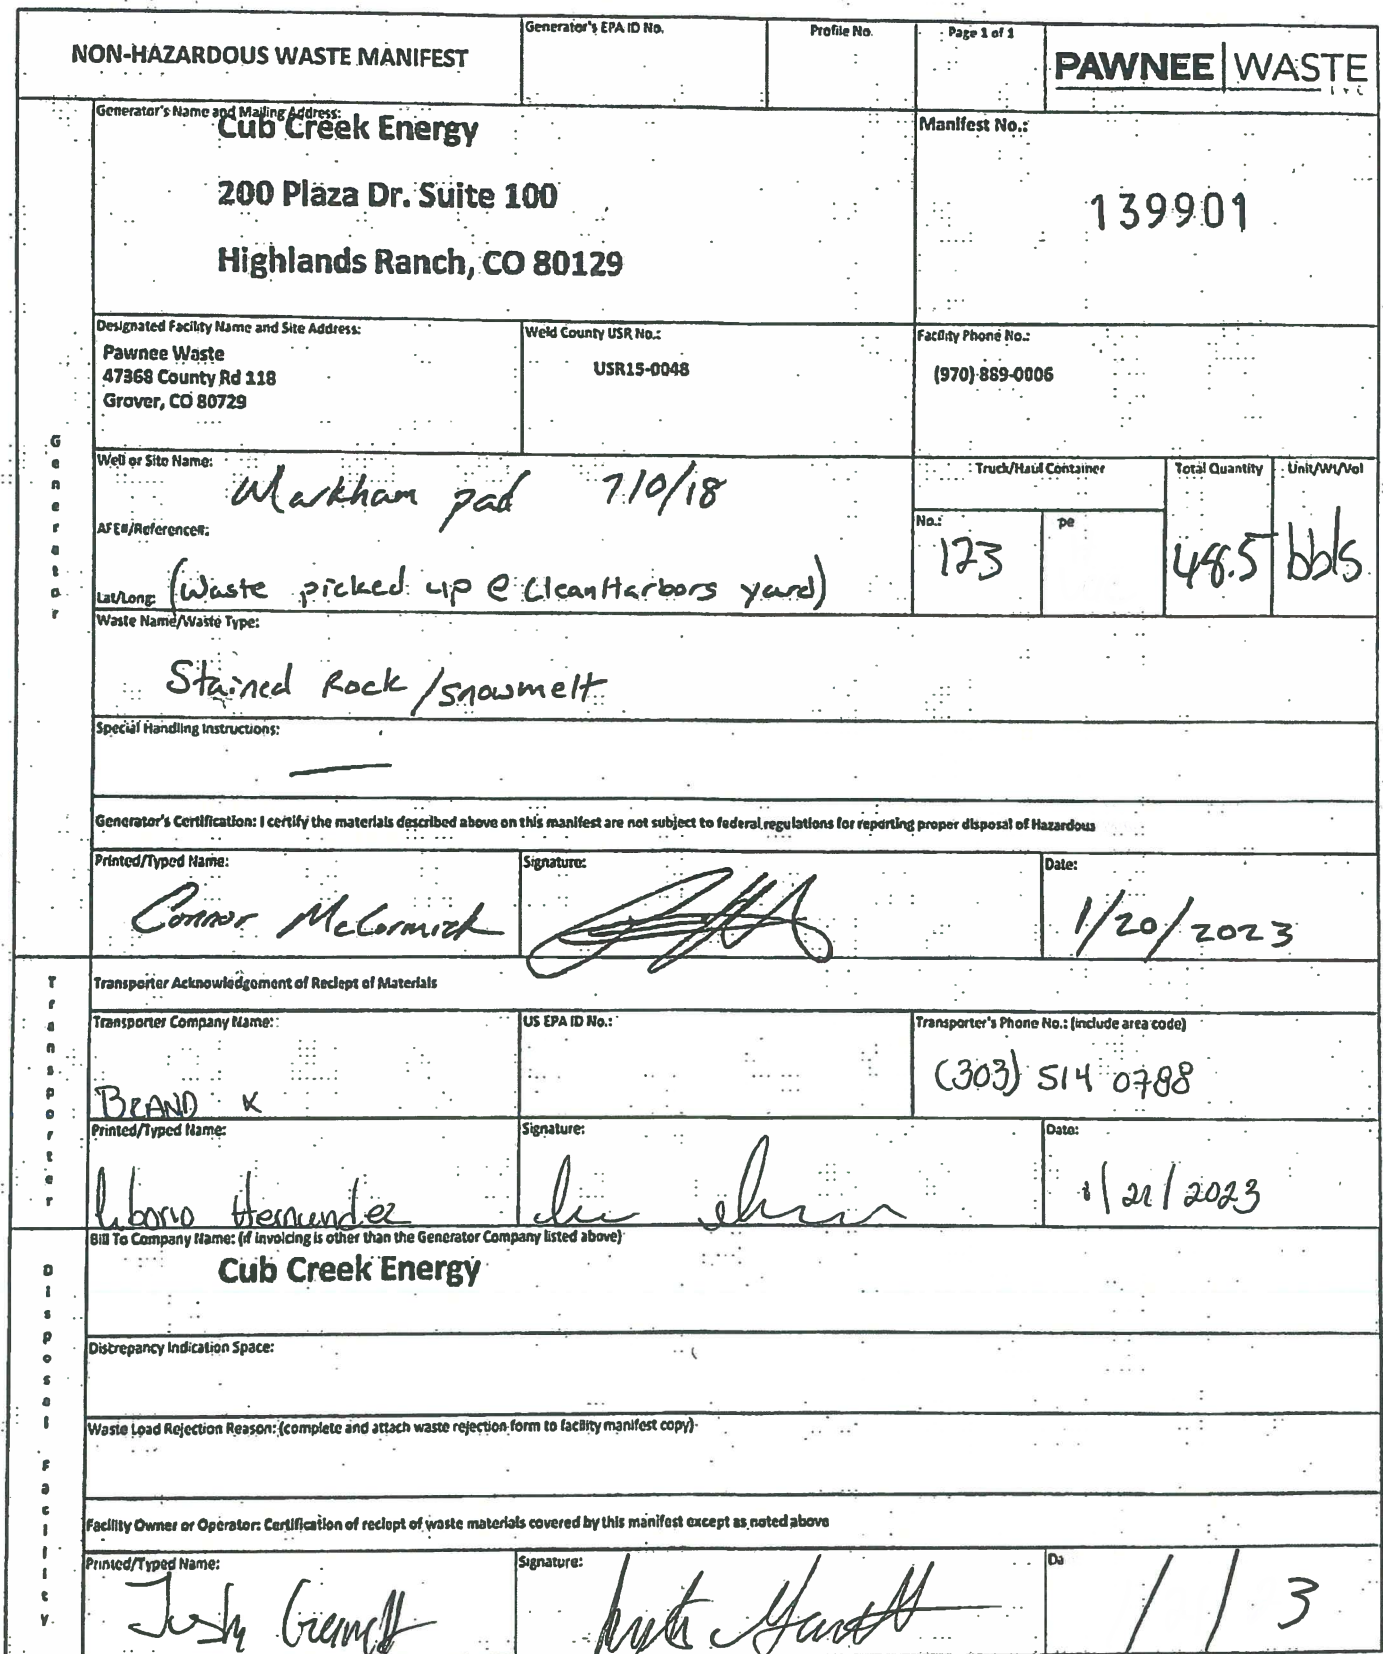 NON-HAZARDOUS WASTE MANIFEST
Generator's EPA ID No.
Profile No.
Page 1 of 1
PAWNEE WASTE
LLC
Generator
Generator's Name and Mailing Address:
Cub Creek Energy
200 Plaza Dr. Suite 100
Highlands Ranch, CO 80129
Manifest No.:
139901
Designated Facility Name and Site Address:
Pawnee Waste
47368 County Rd 118
Grover, CO 80729
Weld County USR No.:
USR15-0048
Facility Phone No.:
(970) 889-0006
Well or Site Name:
Markham pad
AFE#/Reference#:
Lat/Long: (Waste picked up @ CleanHarbors yard)
Truck/Haul Container
No.:
123
pe
Total Quantity
48.5
Unit/Wt/Vol
bbls
Waste Name/Waste Type:
Stained Rock /snowmelt
Special Handling Instructions:
—
Generator's Certification: I certify the materials described above on this manifest are not subject to federal regulations for reporting proper disposal of Hazardous
Printed/Typed Name:
Connor McCormick
Signature:
Date:
1/20/2023
Transporter
Transporter Acknowledgement of Reciept of Materials
Transporter Company Name:
BRAND X
US EPA ID No.:
Transporter's Phone No.: (include area code)
(303) 514 0788
Printed/Typed Name:
Liborio Hernandez
Signature:
Date:
1/21/2023
Disposal Facility
Bill To Company Name: (if invoicing is other than the Generator Company listed above)
Cub Creek Energy
Discrepancy Indication Space:
Waste Load Rejection Reason: (complete and attach waste rejection form to facility manifest copy)
Facility Owner or Operator: Certification of reciept of waste materials covered by this manifest except as noted above
Printed/Typed Name:
Signature:
Da
/ / 3